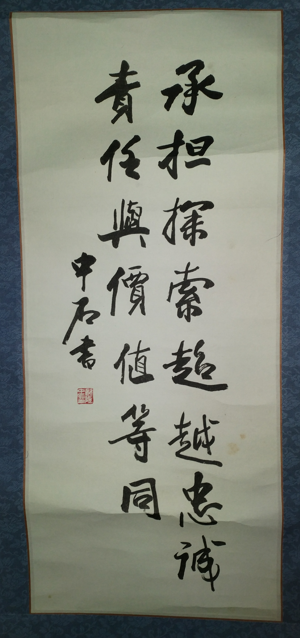 承担探索超越忠诚
責任與價值等同
中石書